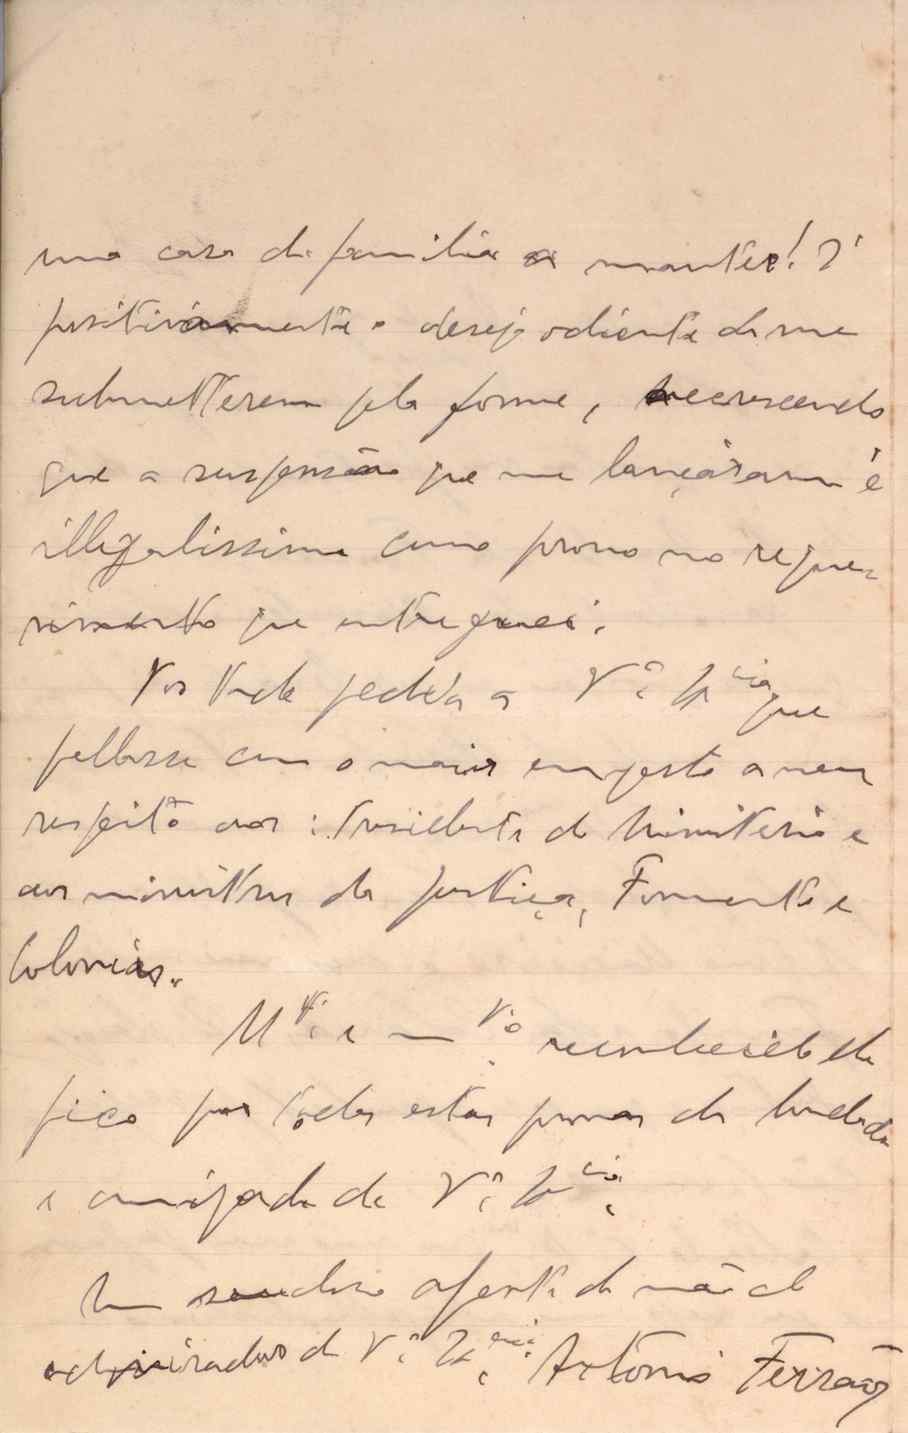 uma casa de familia a manter! É
positivamente o desejo odiento de me
submetterem pela fome, accrescendo
que a suspensão que me lançáram é
illegalissima como provo no reque-
rimento que entreguei.
Por tudo pedia a V.ª Ex.cia que
fallasse com o maior empenho a meu
respeito aos: Presidente do Ministerio e
aos ministros da Justiça, Fomento e
Colonias.
M.to e m.to reconhecido
fico por todas estas provas de bondade
e amizade de V.ª Ex.cia.
Um saudoso aperto de mão do
admirador de V.ª Ex.cia Antonio Ferrão